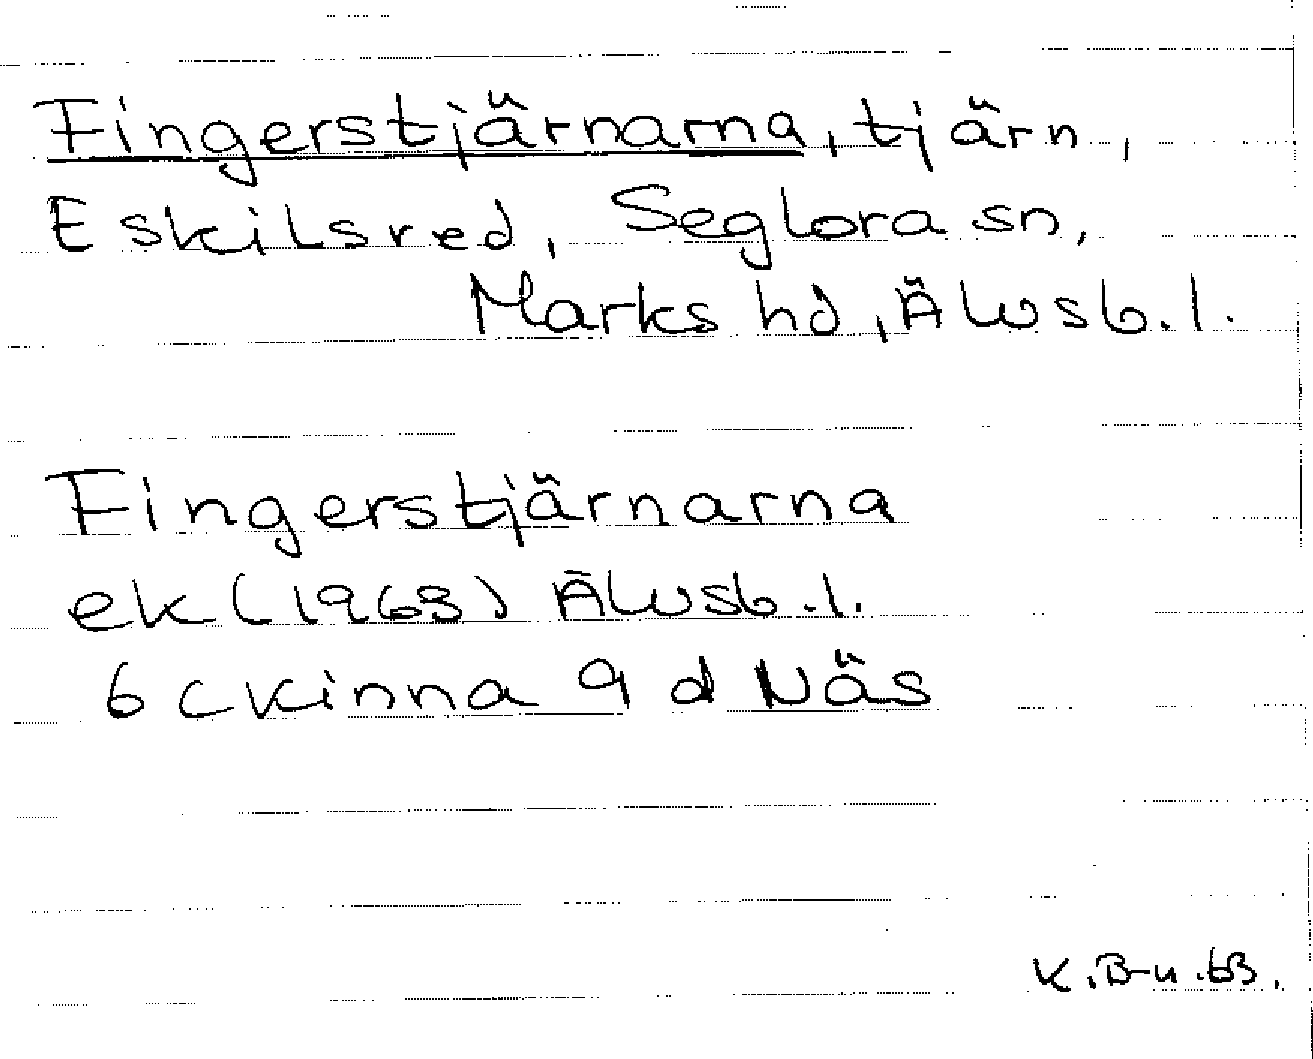 Fingerstjärnarna, tjärn,
Eskilsred, Seglora sn,
Marks hd, Älvsb. l.
Fingerstjärnarna
ek (1963) Älvsb. l.
6 c Kinna 9 d Näs
K.B-n. 63.